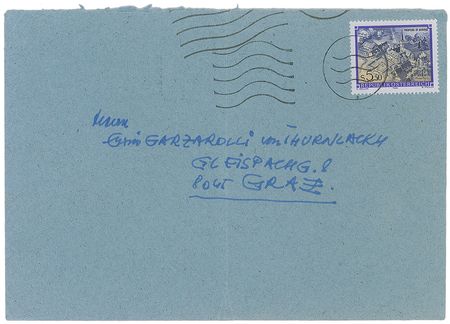 S 5.50
REPUBLIK ÖSTERREICH
Herrn
GARZAROLLI von THURNLACKH
GLEISPACHG. 8
8045 GRAZ.